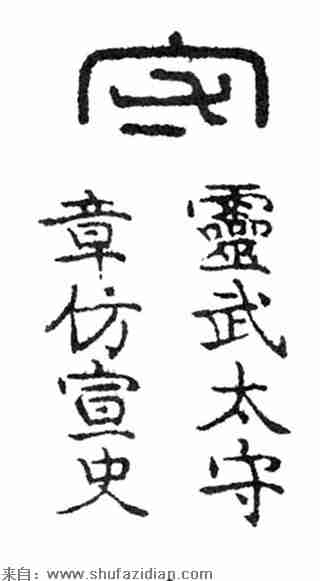 守
靈武太守
章仿宣史
来自：www.shufazidian.com